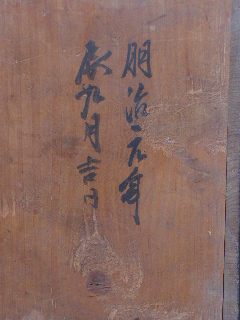 明治元年
辰九月吉日